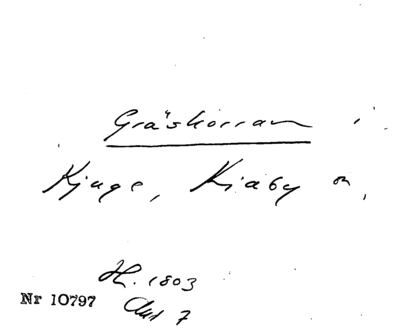 Gräskorran i
Kjuge, Kiaby sn,
H. 1803
Nr 10797
Akt 7